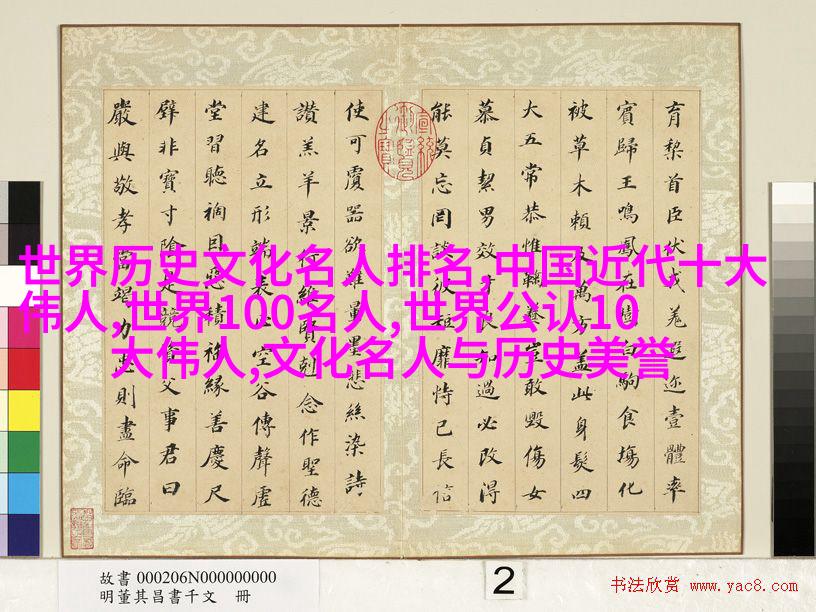 育黎首臣伏戎羌遐迩壹體率
賓歸王鳴鳳在樹白駒食場化
被草木賴及萬方蓋此身髮四
大五常恭惟鞠養豈敢毀傷女
慕貞絜男效才良知過必改得
能莫忘罔談彼短靡恃己長信
使可覆器欲難量墨悲絲染詩
讚羔羊景行維賢剋念作聖德
建名立形端表正空谷傳聲虛
堂習聽禍因惡積福緣善慶尺
璧非寶寸陰是競資父事君曰
嚴與敬孝當竭力忠則盡命臨
世界历史文化名人排名,中国近代十大
伟人,世界100名人,世界公认10
大伟人,文化名人与历史美誉
故書 000206N000000000
明董其昌書千文 冊
2
书法欣赏 www.yac8.com